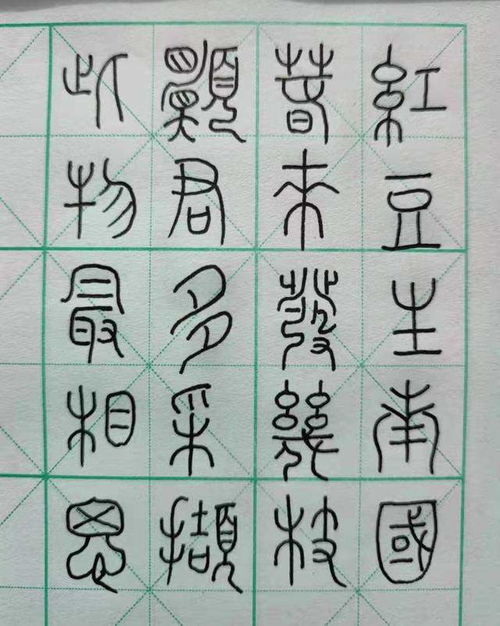 紅豆生南國
春來發幾枝
願君多采擷
此物最相思